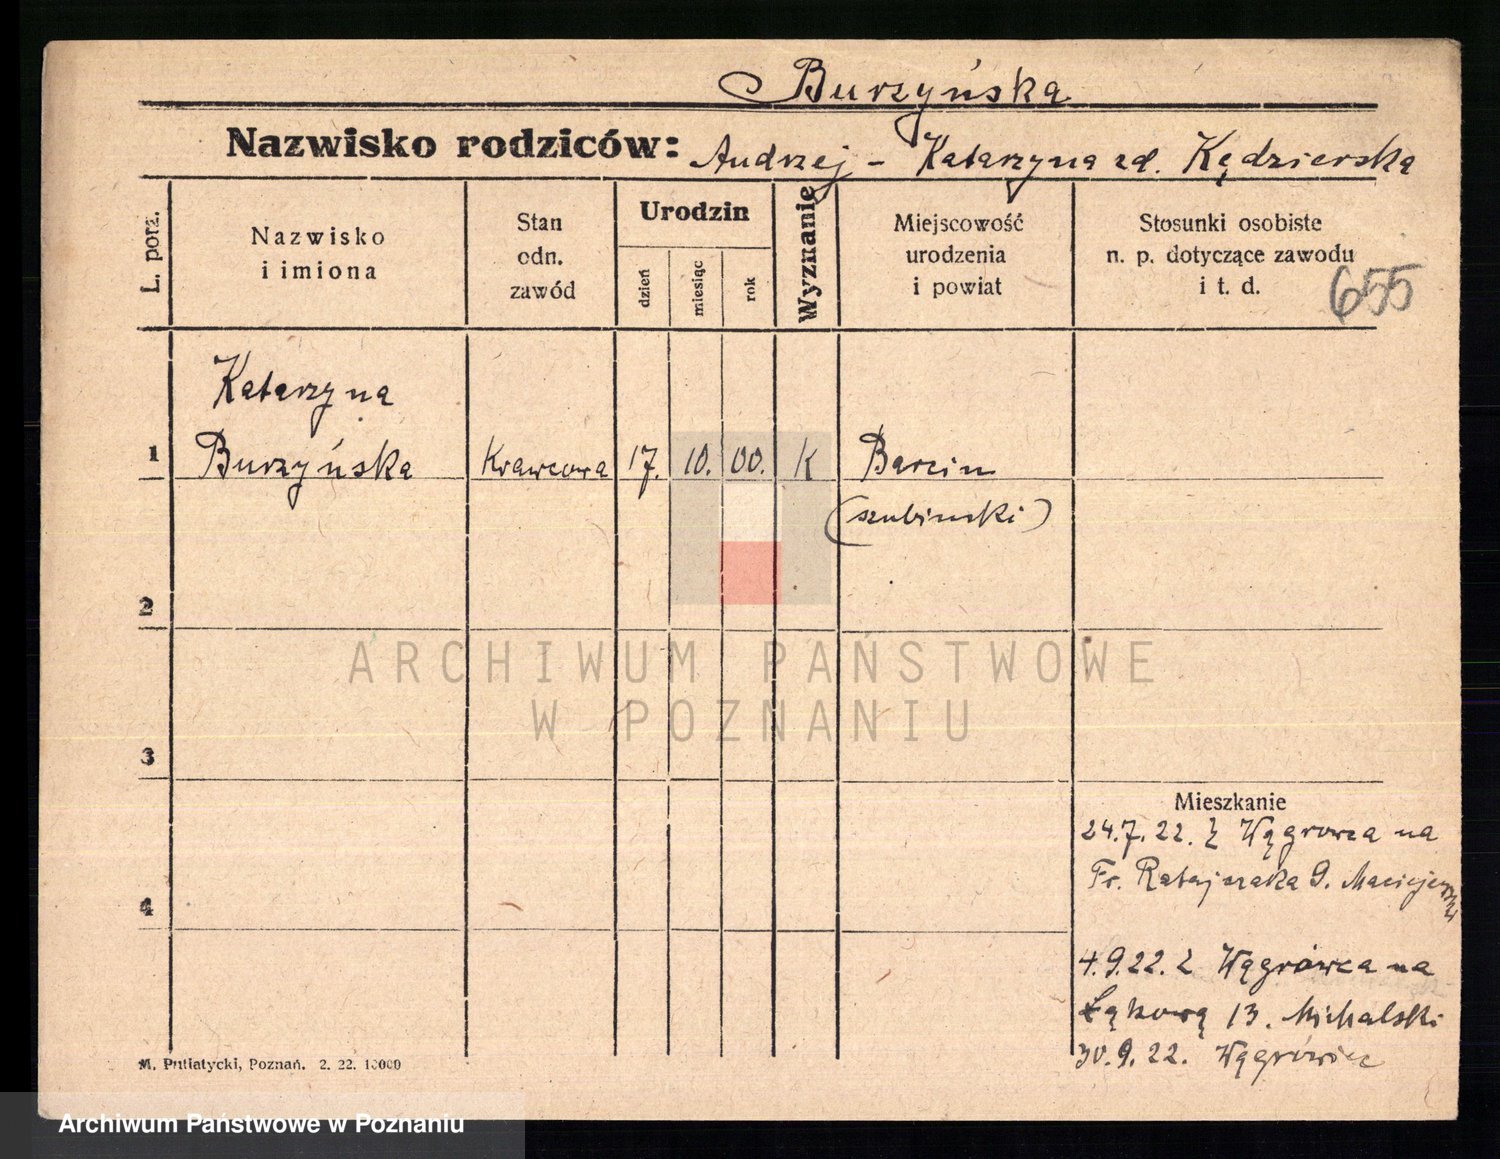 Burzyńska
Nazwisko rodziców: Andrzej - Katarzyna zd. Kędzierska
L. porz.
Nazwisko
i imiona
Stan
odn.
zawód
Urodzin
dzień
miesiąc
rok
Wyznanie
Miejscowość
urodzenia
i powiat
Stosunki osobiste
n. p. dotyczące zawodu
i t. d.
655
Katarzyna
1 Burzyńska Krawcowa 17. 10. 00. K Barcin
(szubinski)
2
ARCHIWUM PAŃSTWOWE
W POZNANIU
3
Mieszkanie
24.7.22. z Wągrowca na
Fr. Ratajczaka 9.
4
4.9.22. z Wągrówca na
Łąkową 13. Michalski
30.9.22. Wągrówiec
M. Putiatycki, Poznań. 2. 22. 10000
Archiwum Państwowe w Poznaniu